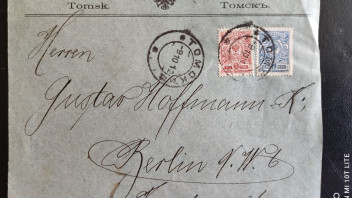 Tomsk. ТОМСКЪ.
ТОМСКЪ
9 10 12
Herren
Gustav Hoffmann
Berlin N.W. 6
MI 10T LITE